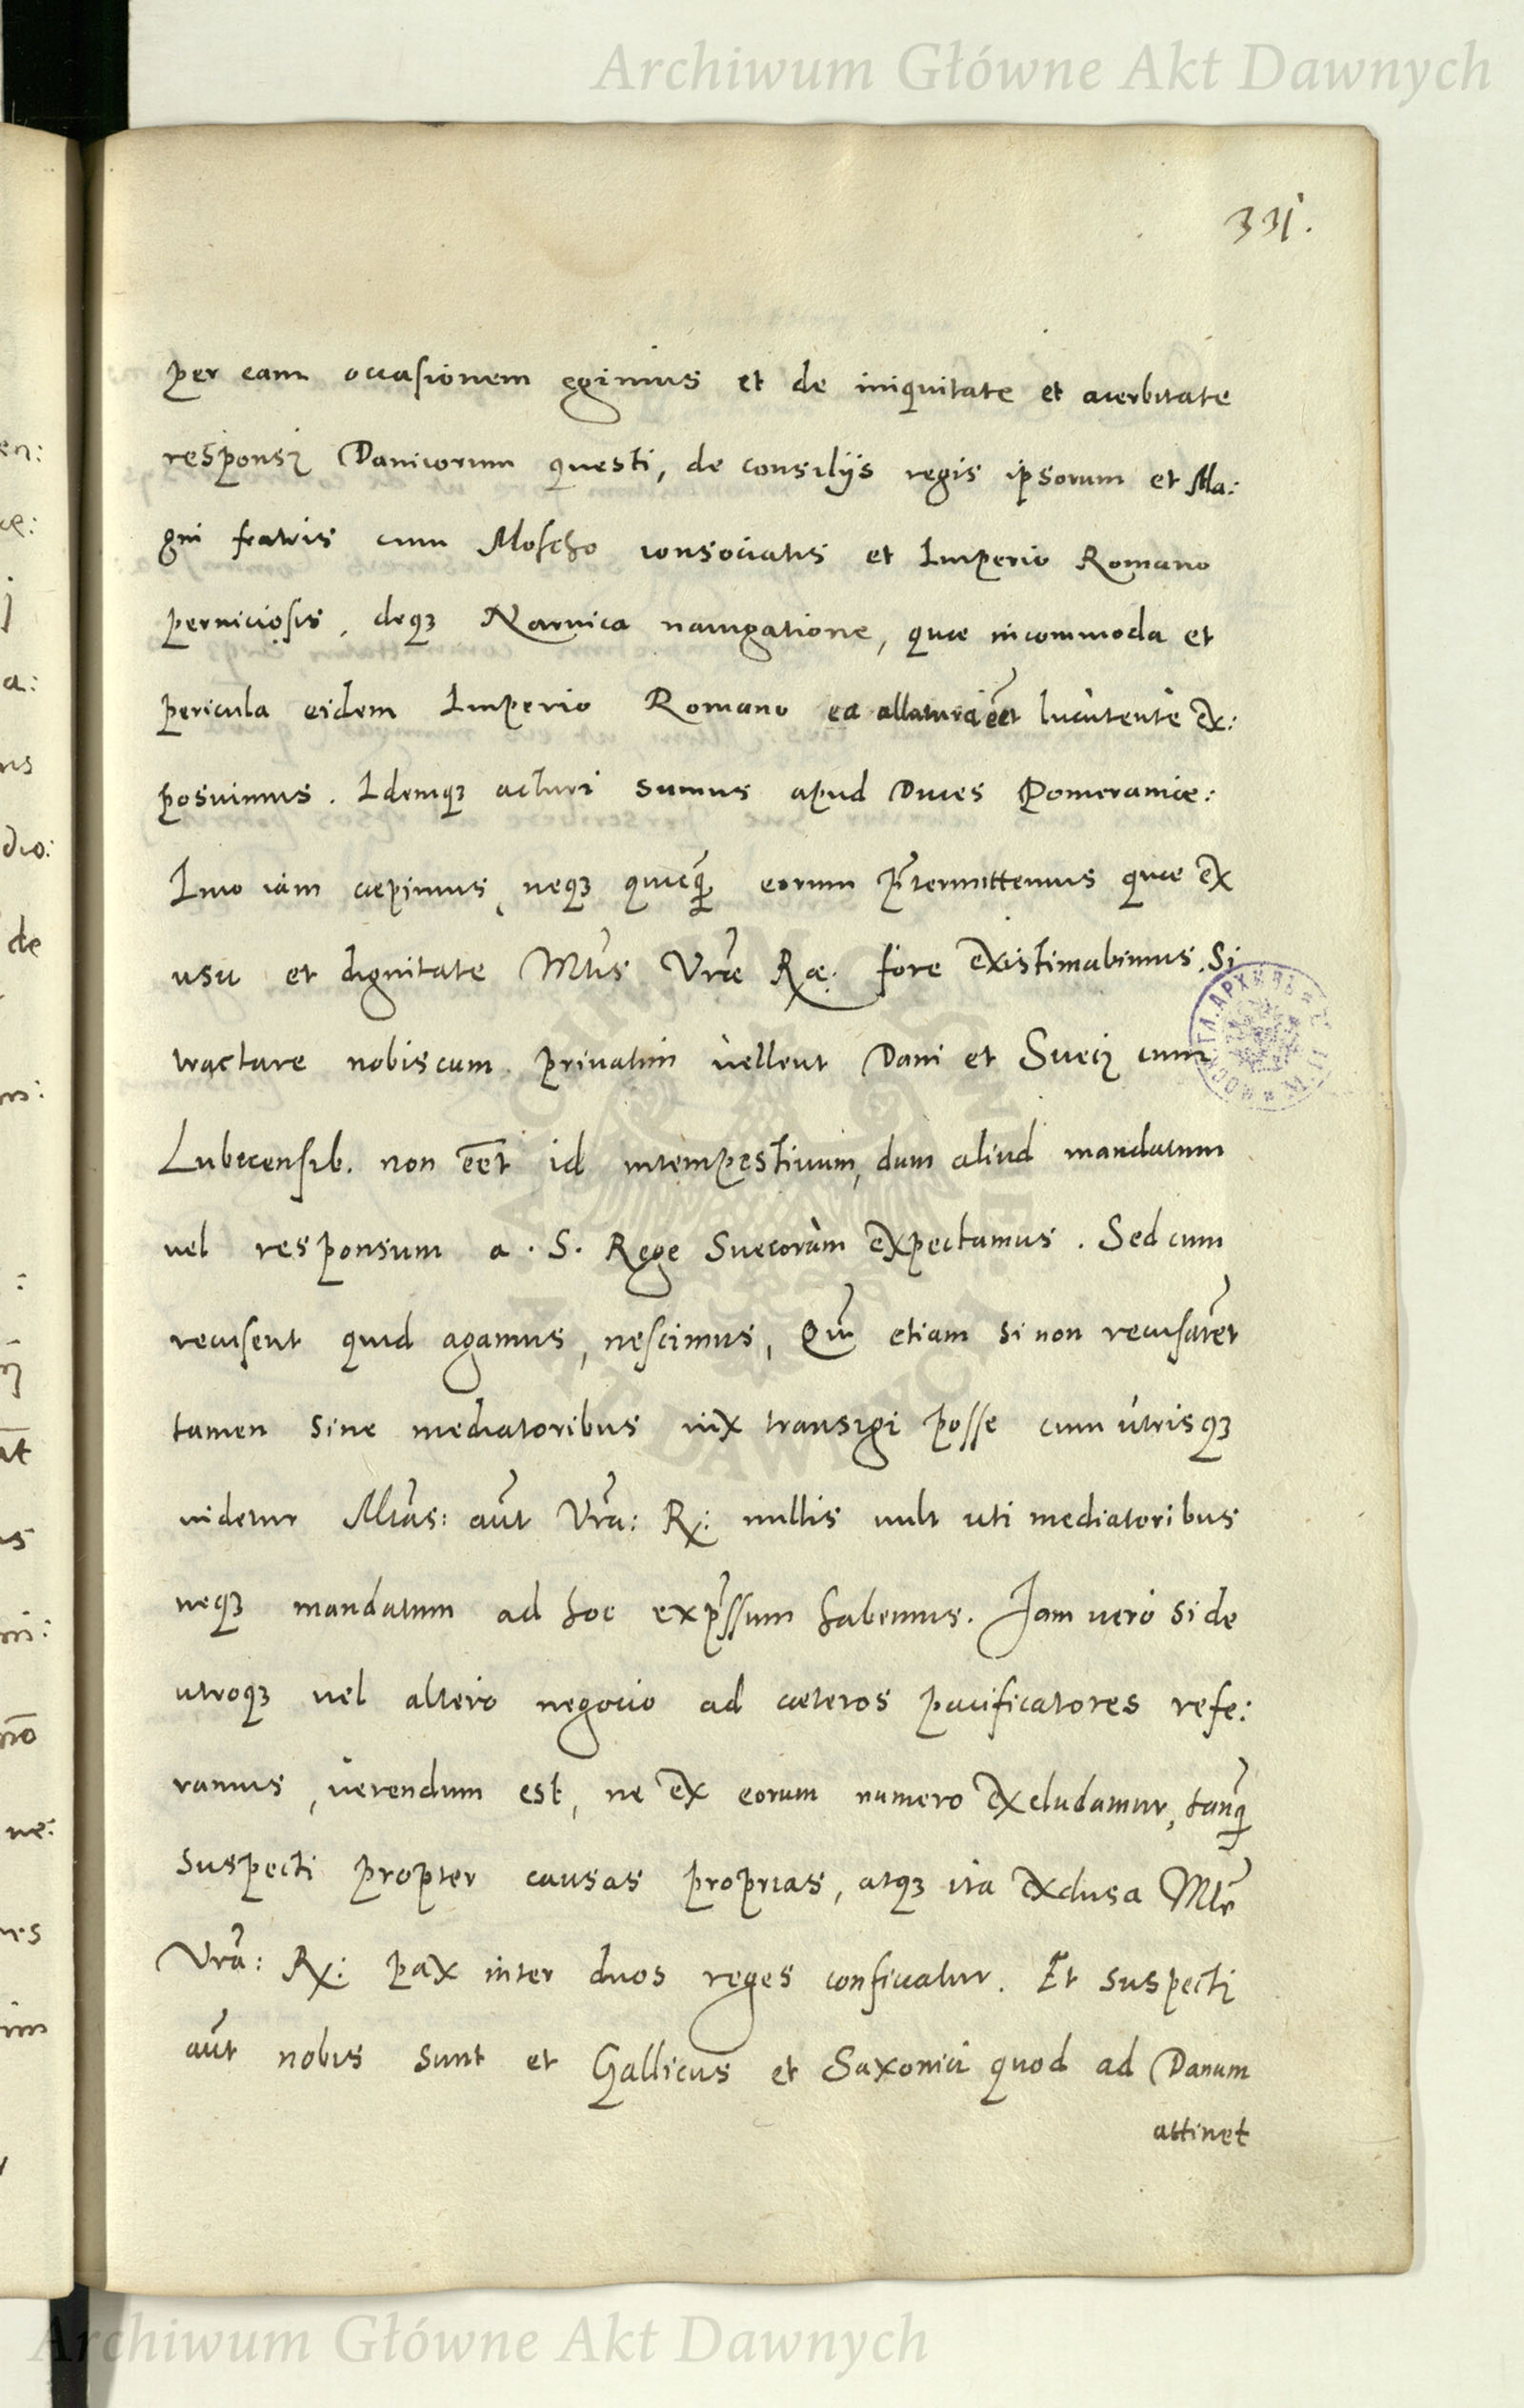 Archiwum Główne Akt Dawnych
331.
per eam occasionem egimus et de iniquitate et acerbitate
responsi Danicorum questi, de consilijs regis ipsorum et Ma:
gni fratris cum Moscho consociatis et Imperio Romano
perniciosis, deqꝫ Narvica navigatione, quae incommoda et
pericula eidem Imperio Romano ea allatura eēt luculente ex:
posuimus. Idemqꝫ acturi sumus apud Duces Pomeraniae:
Imo iam caepimus, neqꝫ quicqꝫ eorum p̄termittemus quae ex
usu et dignitate Mtis Vrae Rae: fore existimabimus. Si
tractare nobiscum privatim vellent Dani et Sueci cum
Lubecensib. non eēt id intempestivum, dum aliud mandatum
vel responsum a. S. Rege Suecorum expectamus. Sed cum
recusent quid agamus, nescimus, Qui etiam si non recusarēt
tamen sine mediatoribus vix transigi posse cum utrisqꝫ
videtur Mtas: aūt Vra: Rx: nullis vult uti mediatoribus
neqꝫ mandatum ad hoc exp̄ssum habemus. Iam vero si de
utroqꝫ vel altero negocio ad caeteros pacificatores refe:
ramus, verendum est, ne ex eorum numero excludamur, tanqꝫ
suspecti propter causas proprias, atqꝫ ita exclusa Mte
Vra: Rx: pax inter duos reges conficiatur. Et suspecti
aūt nobis sunt et Gallicus et Saxonici quod ad Danum
attinet
Archiwum Główne Akt Dawnych